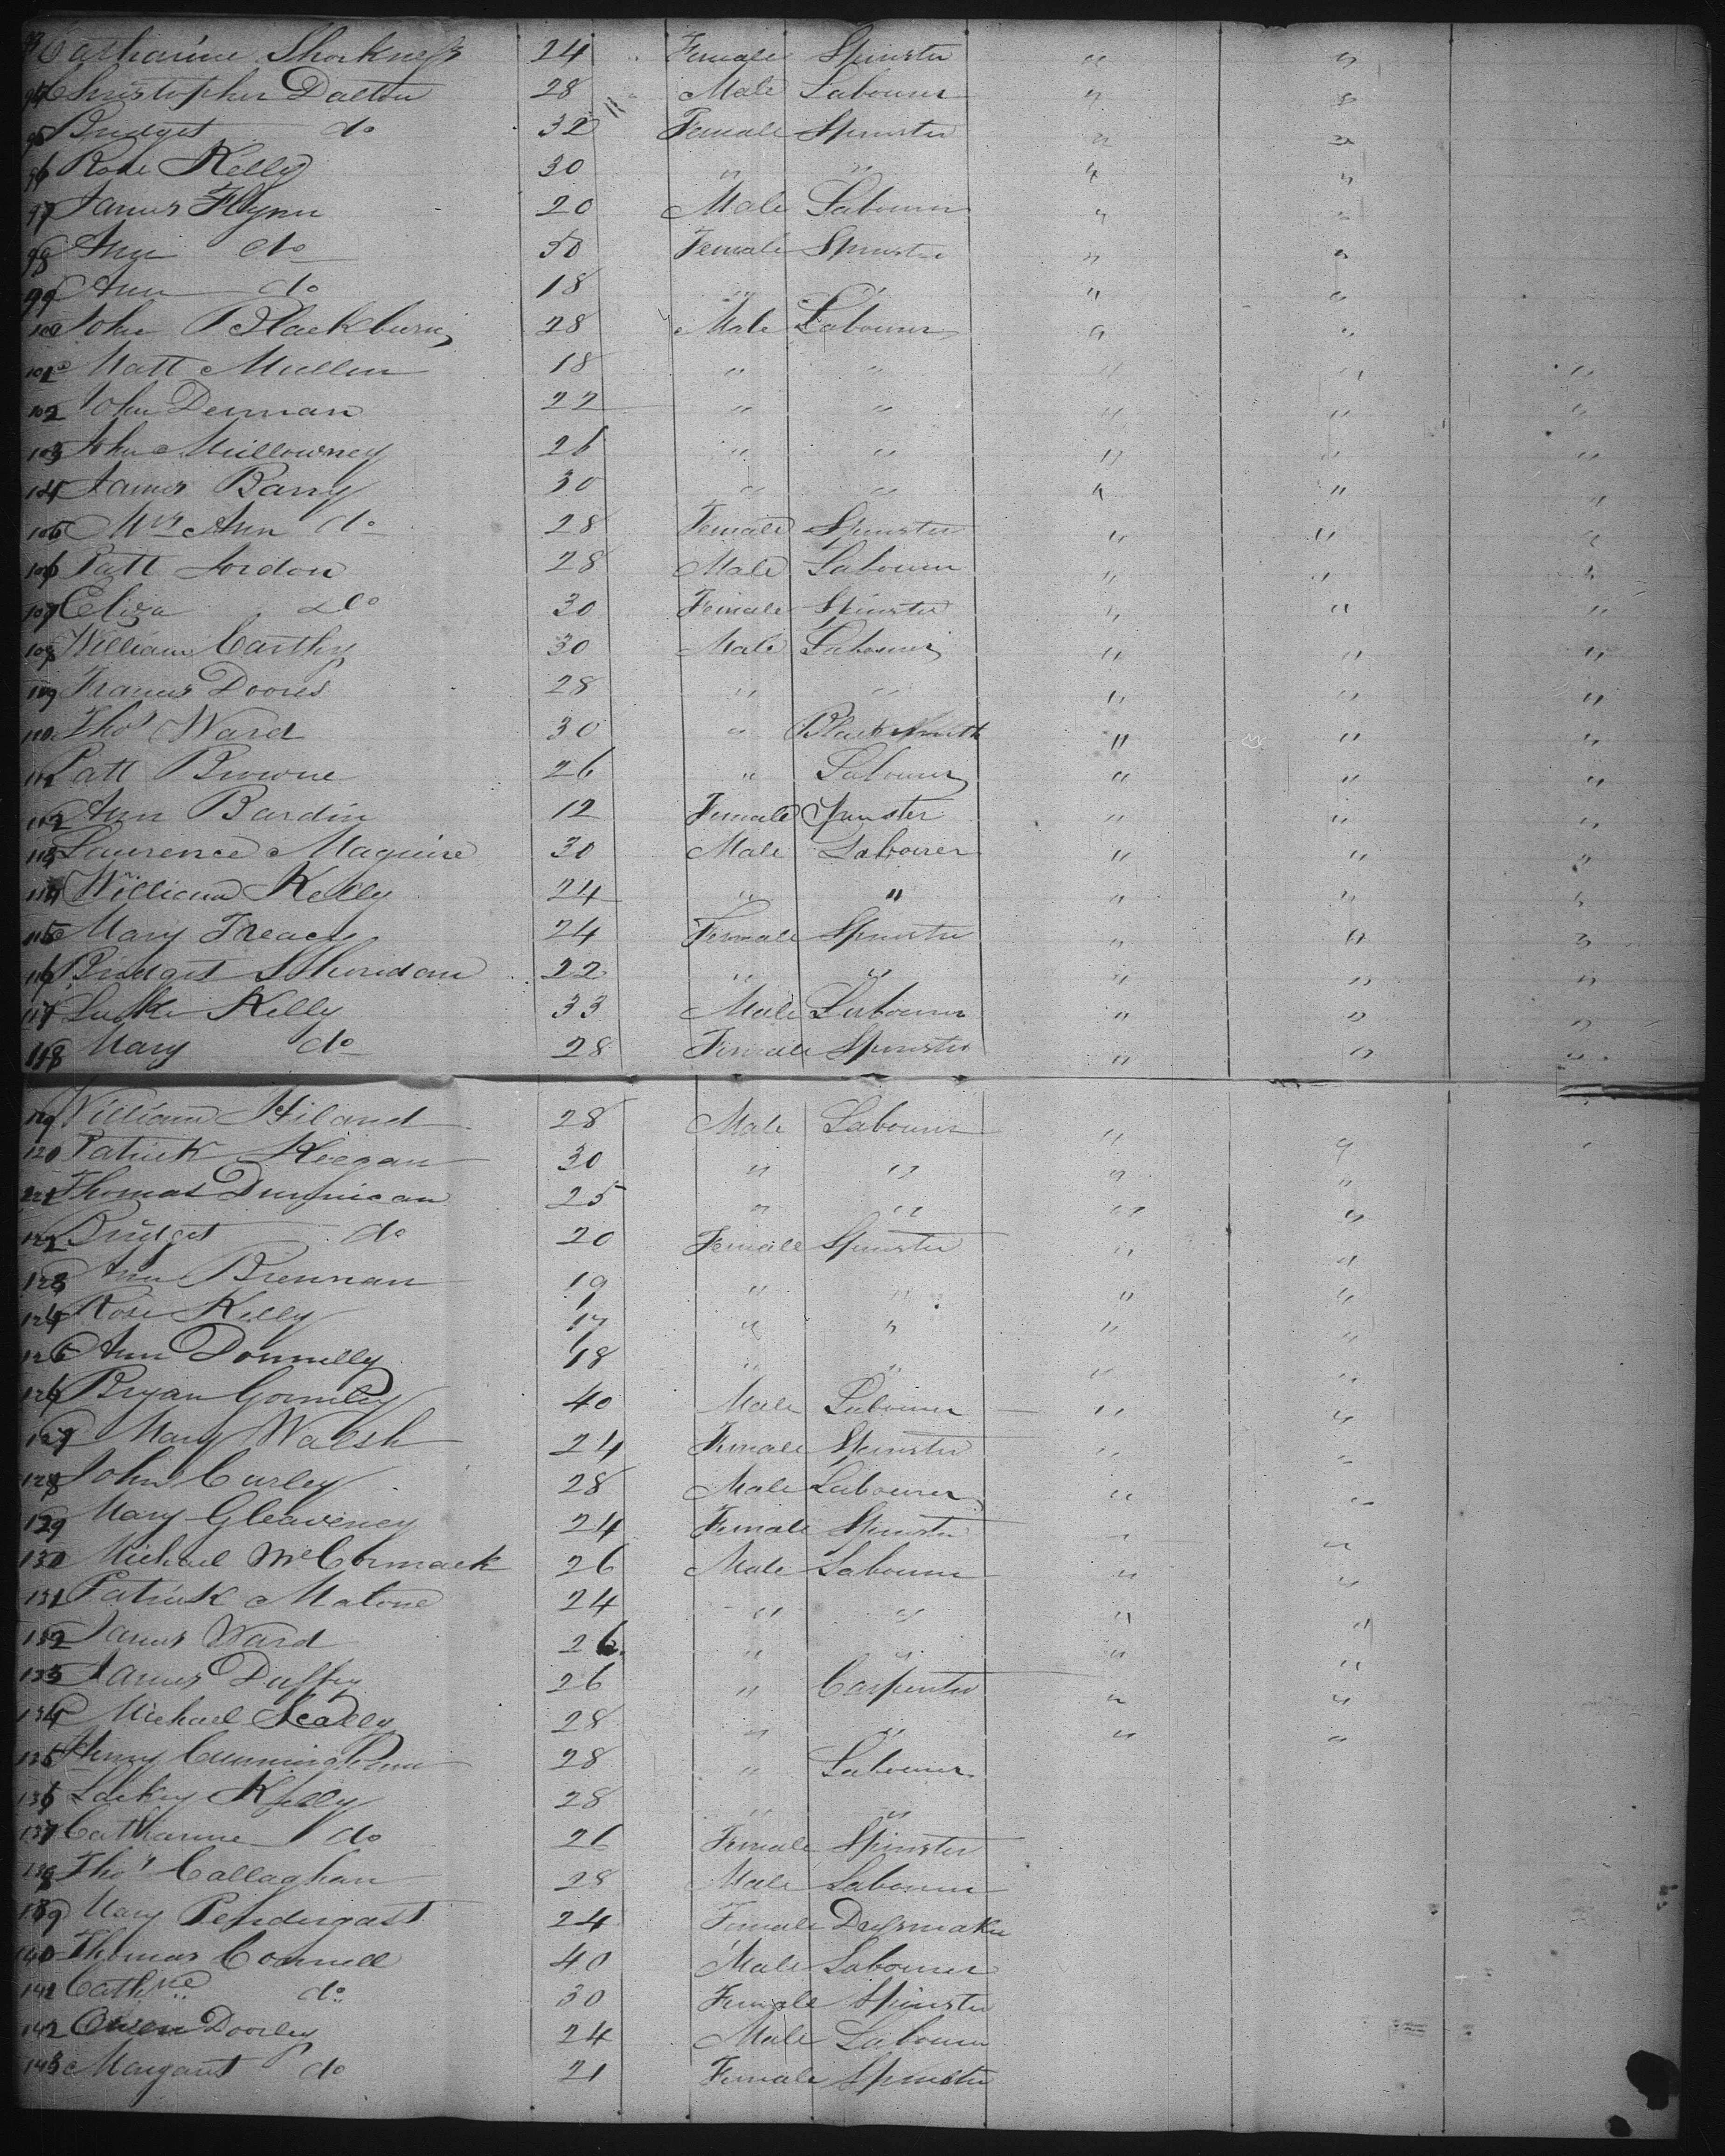 93 Catharine Shorkness 24 Female Spinster " "
94 Christopher Dalton 28 Male Labourer " "
95 Bridget do 32 Female Spinster " "
96 Rose Kelly 30 " " " "
97 James Flynn 20 Male Labourer " "
98 Ann do 50 Female Spinster " "
99 Ann do 18 " " " "
100 John Blackburn 28 Male Labourer " "
101 Matt Mullen 18 " " " " "
102 John Dennan 22 " " " " "
103 John Mullowney 26 " " " " "
104 James Barry 30 " " " " "
105 Mrs Ann do 28 Female Spinster " " "
106 Patt Jordon 28 Male Labourer " " "
107 Eliza do 30 Female Spinster " " "
108 William Carthy 30 Male Labourer " " "
109 Francis Doores 28 " " " " "
110 Thos Ward 30 " Blacksmith " " "
111 Patt Browne 26 " Labourer " " "
112 Ann Bardin 12 Female Spinster " " "
113 Lawrence Maguire 30 Male Labourer " " "
114 William Kelly 24 " " " " "
115 Mary Treacy 24 Female Spinster " " "
116 Bridget Sheridan 22 " " " " "
117 Luke Kelly 33 Male Labourer " " "
118 Mary do 28 Female Spinster " " "
119 William Hiland 28 Male Labourer " "
120 Patrick Keegan 30 " " " "
121 Thomas Dunnican 25 " " " "
122 Bridget do 20 Female Spinster " "
123 Ann Brennan 19 " " " "
124 Rose Kelly 17 " " " "
125 Ann Donnelly 18 " " " "
126 Bryan Gormley 40 Male Labourer " "
127 Mary Walsh 24 Female Spinster " "
128 John Curley 28 Male Labourer " "
129 Mary Gleaveney 24 Female Spinster " "
130 Michael McCormack 26 Male Labourer " "
131 Patrick Malone 24 " " " "
132 James Ward 26 " " " "
133 James Duffey 26 " Carpenter " "
134 Michael Scally 28 " " " "
135 Henry Cunningham 28 " Labourer
136 Lackey Kelly 28 " "
137 Catharine do 26 Female Spinster
138 Thos Callaghan 28 Male Labourer
139 Mary Pendergast 24 Female Dressmaker
140 Thomas Connell 40 Male Labourer
141 Cathne do 30 Female Spinster
142 Owen Dooley 24 Male Labourer
143 Margaret do 21 Female Spinster